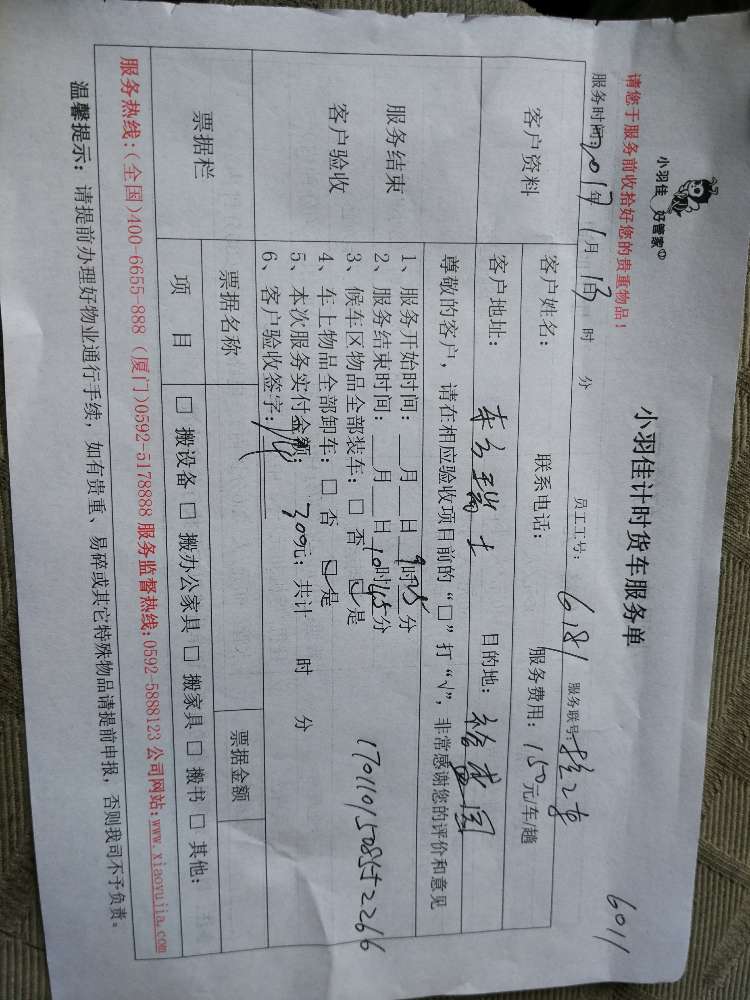 小羽佳 好管家
小羽佳计时货车服务单
6011
请您于服务前收拾好您的贵重物品！
服务时间：2017年1月13日 时 分 员工工号：6181 服务联号：
客户资料
客户姓名： 联系电话： 服务费用：150元/车/趟
客户地址： 目的地：
服务结束
客户验收
尊敬的客户，请在相应验收项目前的“□”打“√”，非常感谢您的评价和意见
1、服务开始时间：__月__日9时25分
2、服务结束时间：__月__日10时45分
3、候车区物品全部装车：□ 否 ☑ 是
4、车上物品全部卸车：□ 否 ☑ 是
5、本次服务实付金额：300元；共计 时 分
6、客户验收签字：
票据栏
票据名称 票据金额
项 目 □ 搬设备 □ 搬办公家具 □ 搬家具 □ 搬书 □ 其他：
服务热线：（全国）400-6655-888（厦门）0592-5178888 服务监督热线：0592-5888123 公司网站：www.xiaoyujia.com
温馨提示：请提前办理好物业通行手续，如有贵重、易碎或其它特殊物品请提前申报，否则我司不予负责。